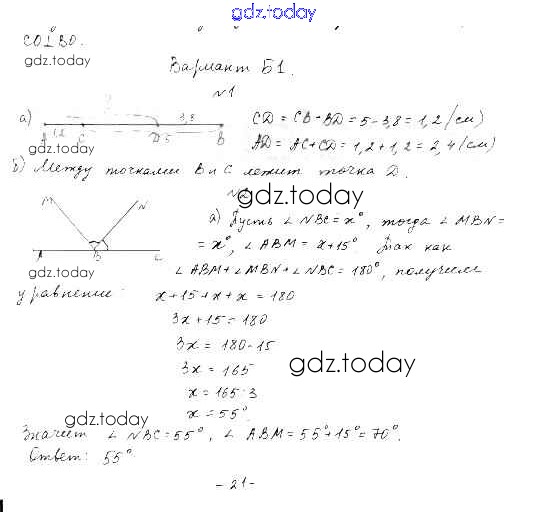 gdz.today
CO⊥BO.
gdz.today
Вариант Б1.
№1
а) 3,8 CD = CB - BD = 5 - 3,8 = 1,2 (см)
A 1,2 C D 5 B
gdz.today AD = AC + CD = 1,2 + 1,2 = 2,4 (см)
б) Между точками B и C лежит точка D.
№2
gdz.today
M N а) Пусть ∠NBC = x°, тогда ∠MBN =
= x°, ∠ABM = x+15°. Так как
A B C
gdz.today ∠ABM + ∠MBN + ∠NBC = 180°, получим
уравнение: x + 15 + x + x = 180
3x + 15 = 180
3x = 180 - 15
gdz.today
3x = 165
x = 165 : 3
x = 55°.
gdz.today
Значит ∠NBC = 55°, ∠ABM = 55° + 15° = 70°.
Ответ: 55°
- 21 -